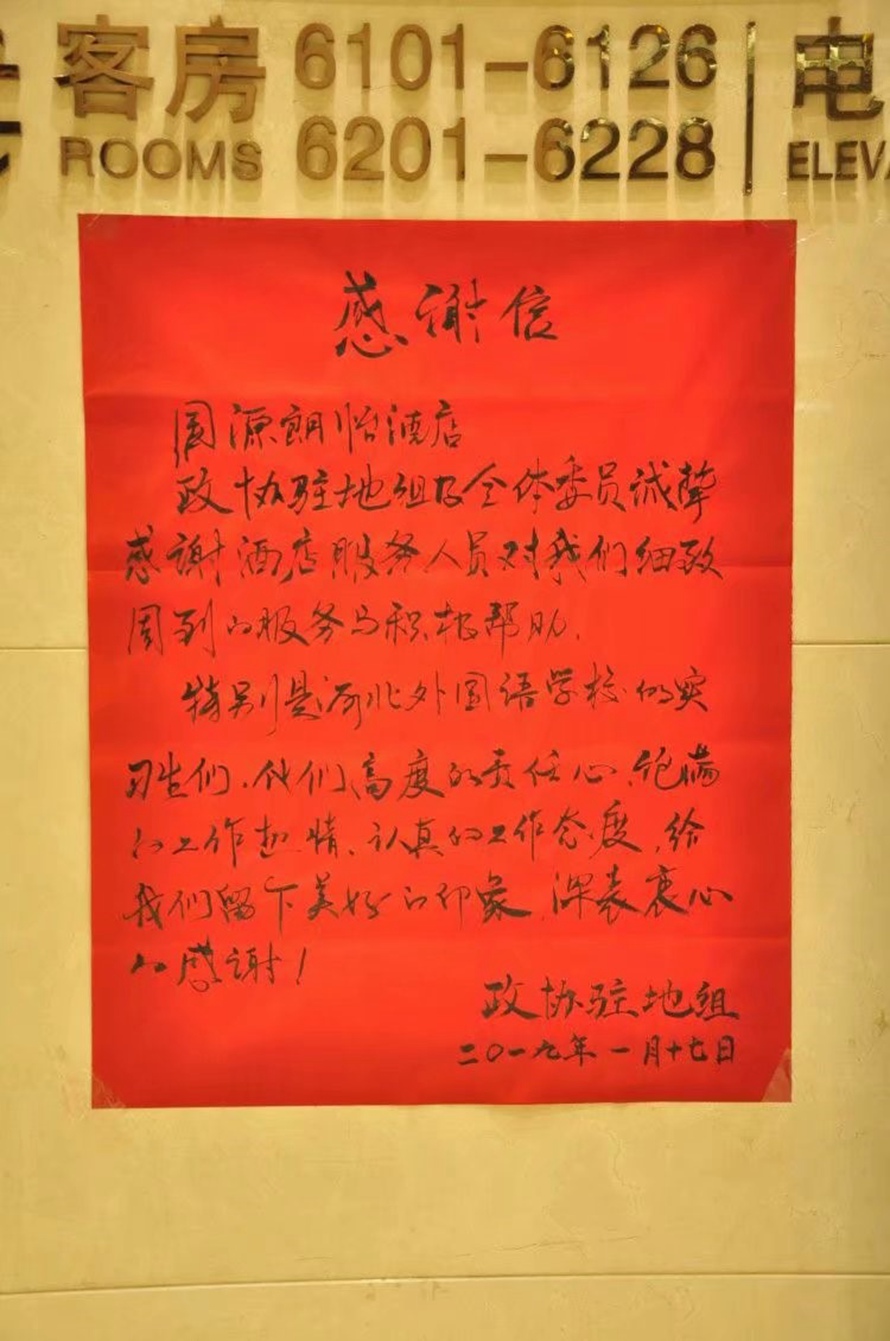 客房 6101-6126 电
ROOMS 6201-6228 ELEVA
感谢信
国源朗怡酒店
政协驻地组及全体委员诚挚
感谢酒店服务人员对我们细致
周到的服务与积极帮助.
特别是河北外国语学校的实
习生们,他们高度的责任心、饱满
的工作热情、认真的工作态度,给
我们留下美好的印象,深表衷心
的感谢!
政协驻地组
二〇一九年一月十七日